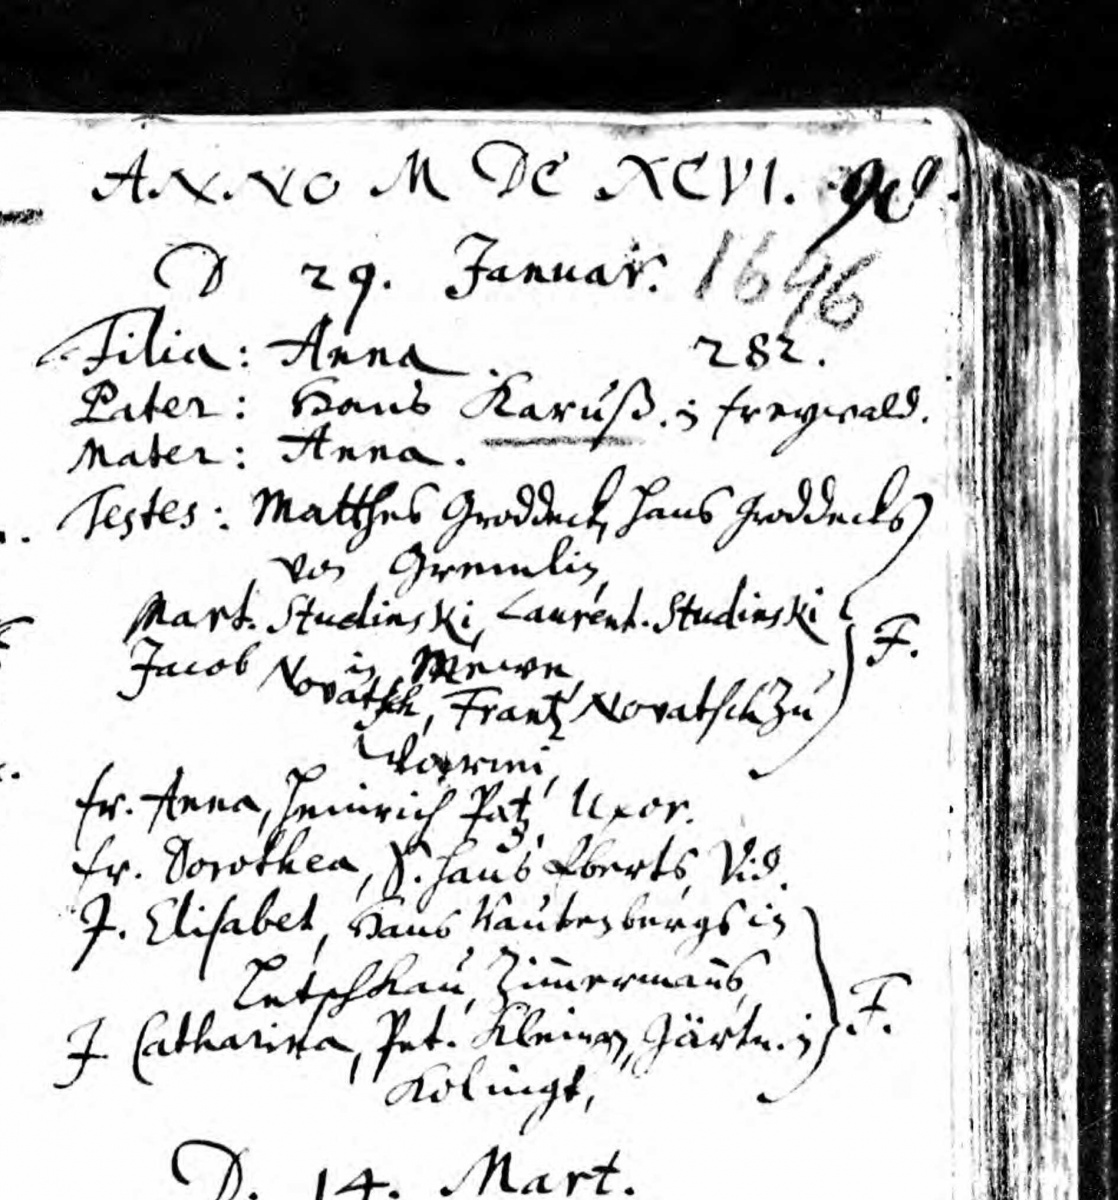 ANNO M DC XCVI. 90.
D 29. Januar. 1696
Filia: Anna. 282.
Pater: Hans Karuß. in freywald.
Mater: Anna.
Testes: Matthes Groddeck, Hans Groddecks
von Gremlin,
Mart. Studinski, Laurent. Studinski
in Mewe,
Jacob Novatsch, Frantz Novatsch zu
fr. Anna, Heinrich Patz, Uxor.
fr. Dorothea, S. Hans Eberts, Vid.
J. Elisabet, Hans Rautenbergs in
F.
Letschkau, Zimmermans,
J. Catharina, Pet. Kleinen, Gärtn. in
F.
D. 14. Mart.